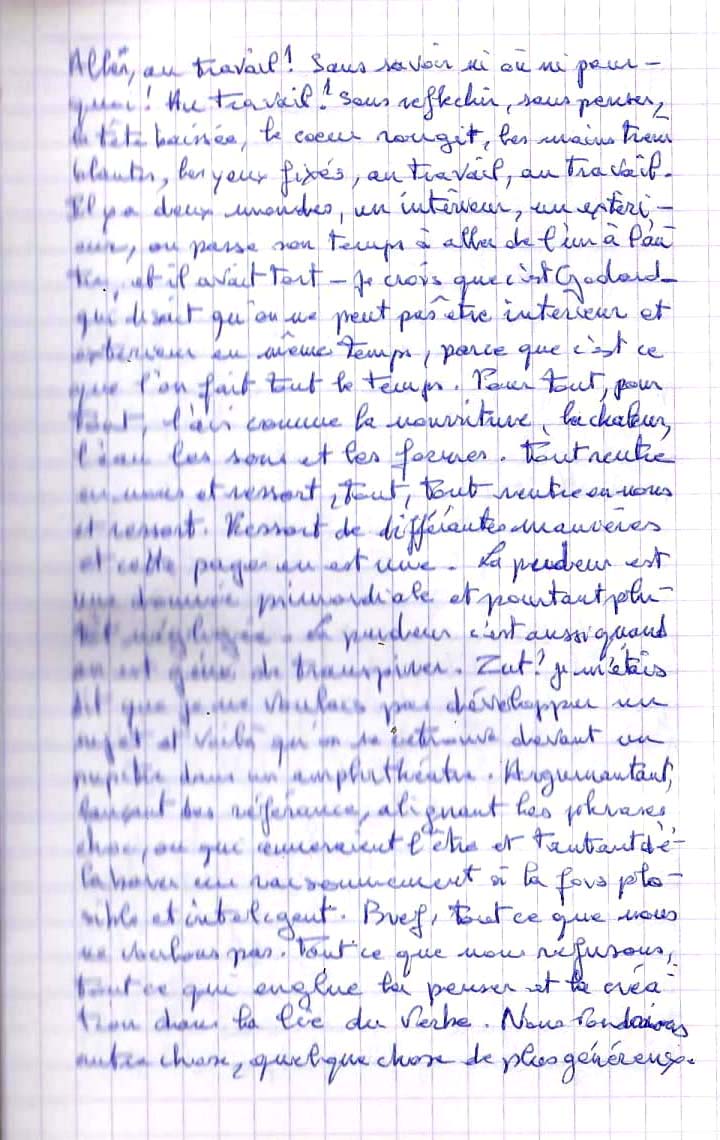 Allez, au travail! Sans savoir ni où ni pour-
quoi! Au travail! sans reflechir, sans penser,
la tête baissée, le coeur rougit, les mains trem
blantes, les yeux fixés, au travail, au travail.
Il y a deux mondes, un intérieur, un exteri-
eur, on passe son temps à aller de l'un à l'au
tre, et il avait tort - je crois que c'est Godard
qui disait qu'on ne peut pas être interieur et
exterieur en même temps, parce que c'est ce
que l'on fait tout le temps. Pour tout, pour
tout, l'air comme la nourriture, la chaleur,
l'eau les sons et les formes. Tout rentre
en nous et ressort, tout, tout rentre en nous
et ressort. Ressort de différentes manières
et cette page en est une. La pudeur est
une donnée primordiale et pourtant plu-
tôt négligée. La pudeur c'est aussi quand
on est géné de transpirer. Zut! je m'étais
dit que je ne voulais pas développer un
sujet et voilà qu'on se retrouve devant un
pupitre dans un amphithéatre. Argumentant,
lançant des référence, alignant les phrases
choc, ou qui aimeraient l'être et tentant d'é-
laborer un raisonnement à la fois plo-
sible et intelegent. Bref, tout ce que nous
ne voulons pas. Tout ce que nous réfusons,
tout ce qui englue la penser et la créa-
tion dans la lie du Verbe. Nous voudrions
autre chose, quelque chose de plus généreux.